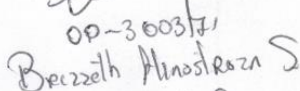 OP-30037,
Breizzeth Hinostroza S